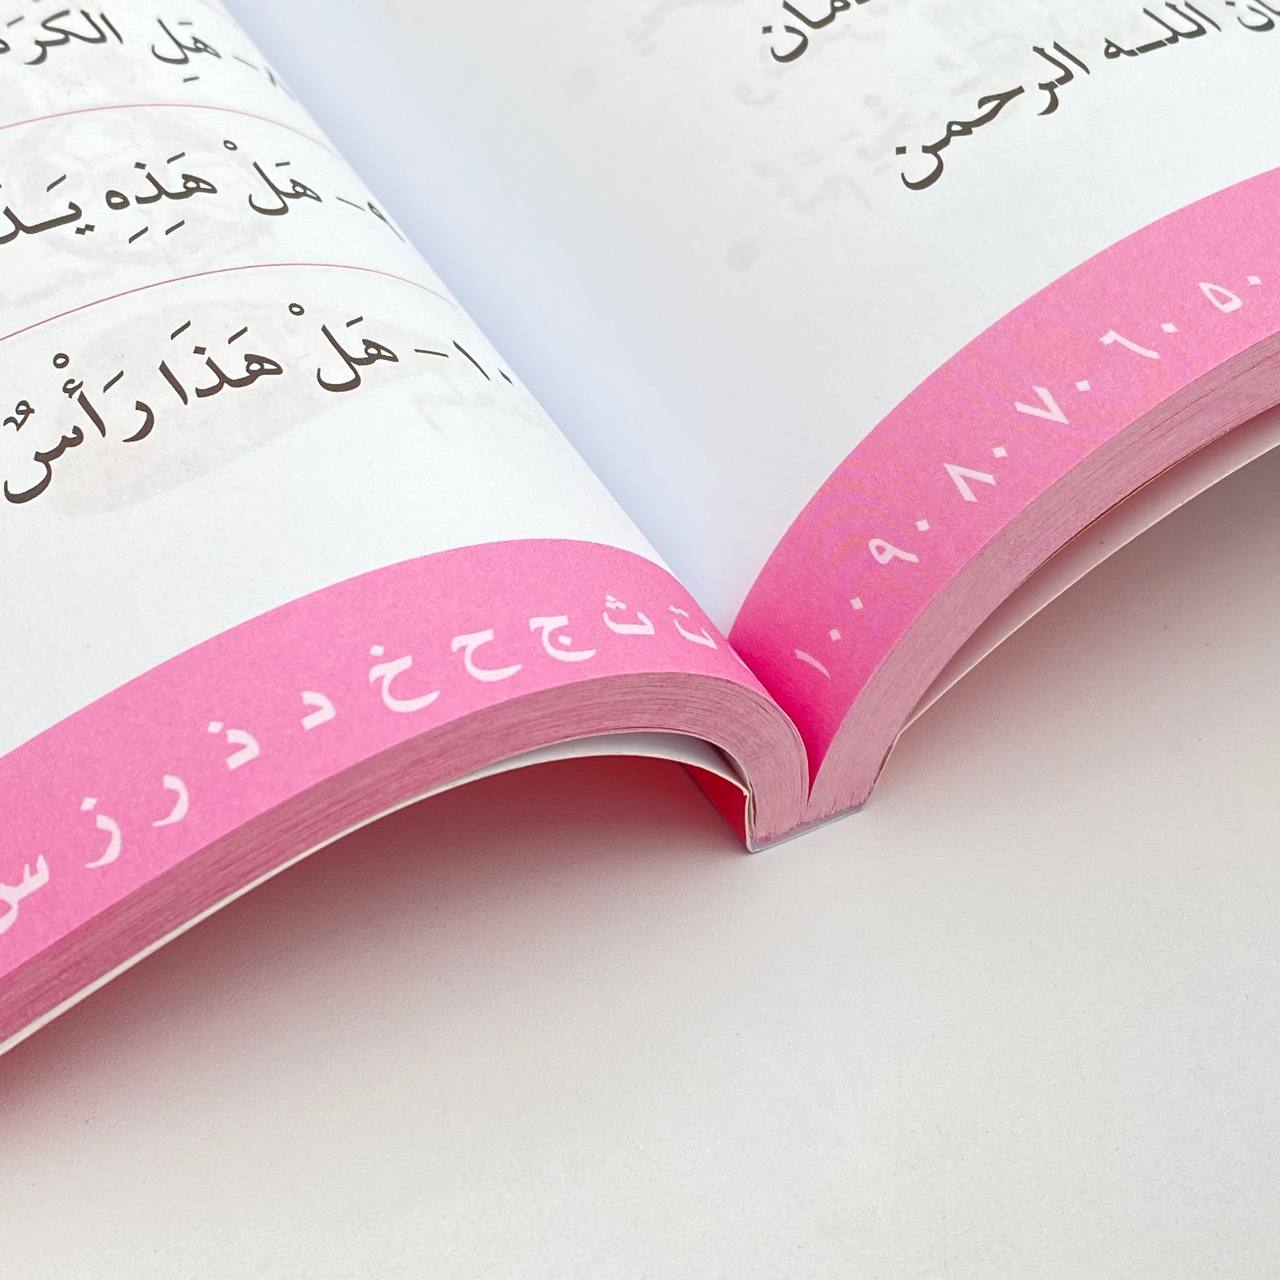 هَلِ
٩- هَلْ هَذِهِ
١٠- هَلْ هَذَا رَأْسٌ
ت ث ج ح خ د ذ ر ز س
الله الرحمن
٥٠ ٦٠ ٧٠ ٨٠ ٩٠ ١٠٠